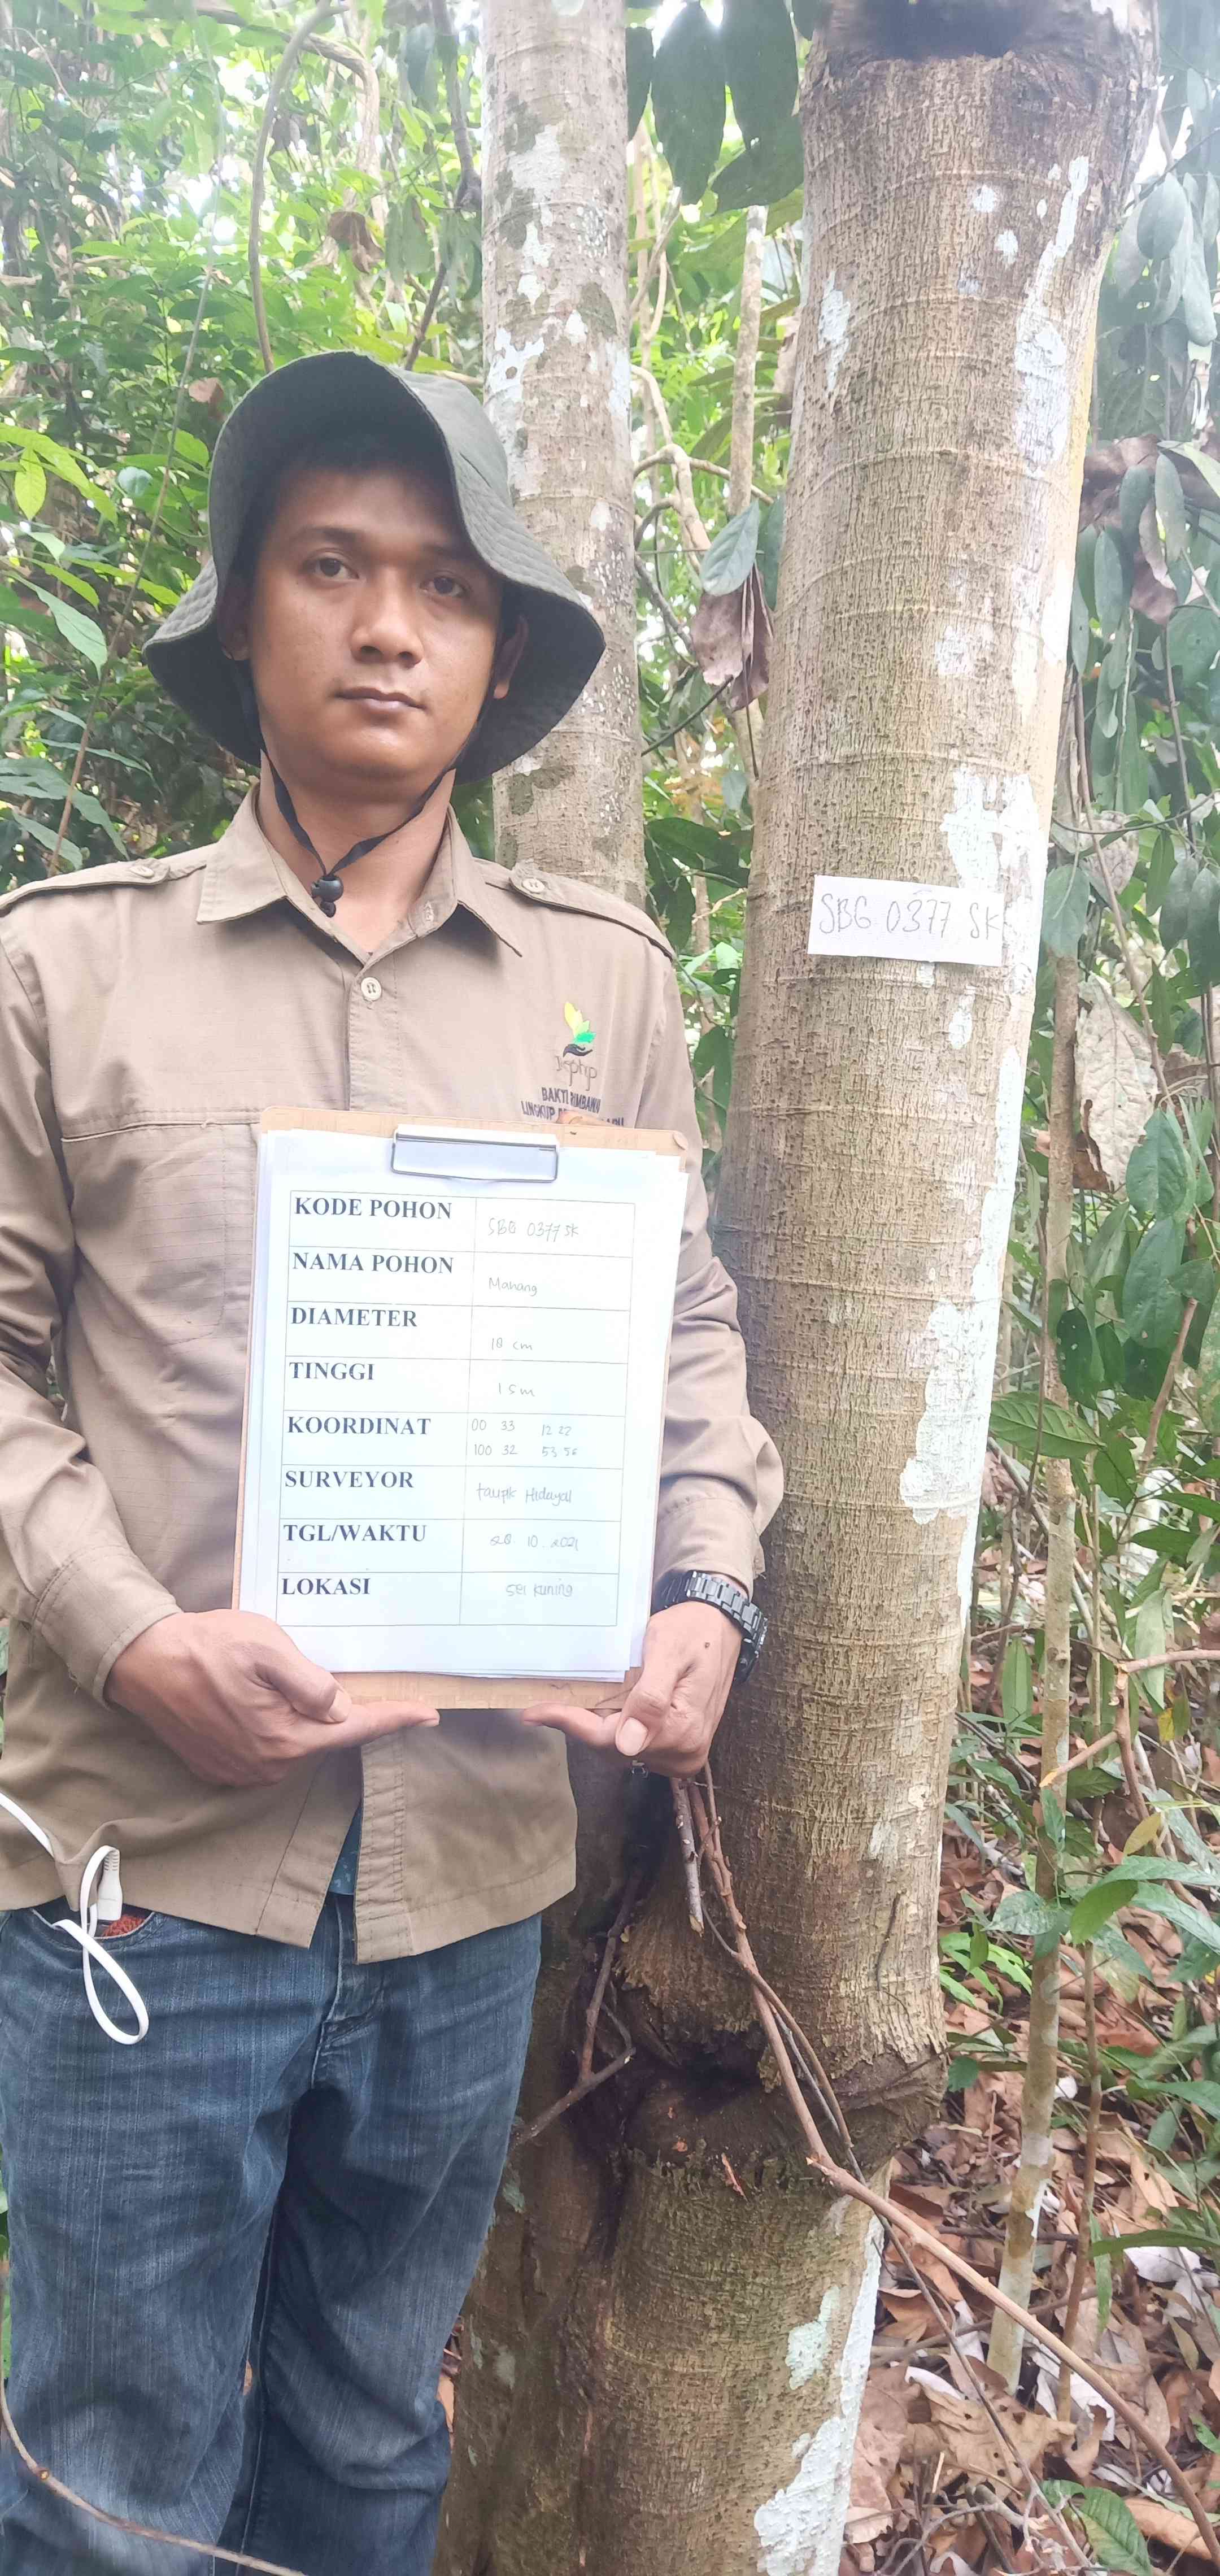 SBG 0377 SK
BAKTI RIMBAWAN
LINGKUP
KODE POHON SBG 0377 SK
NAMA POHON Mahang
DIAMETER 18 cm
TINGGI 15m
KOORDINAT 00 33 12 22
100 32 53 56
SURVEYOR taupik Hidayat
TGL/WAKTU 10. 2021
LOKASI sei kuning